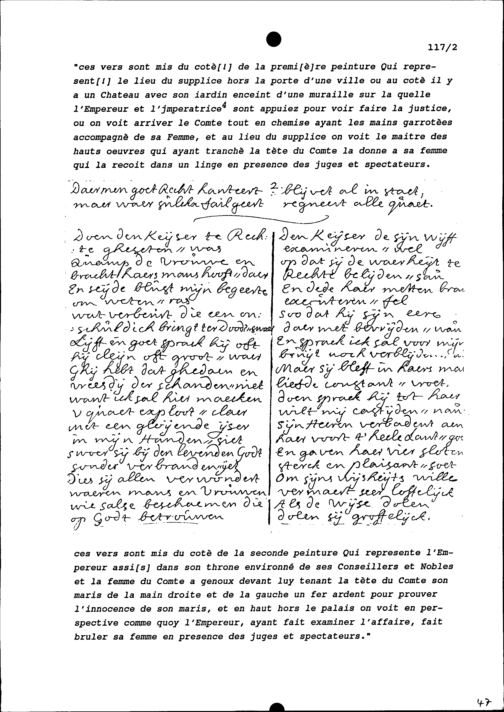 117/2
"ces vers sont mis du cotè[!] de la premi[è]re peinture Qui repre-
sent[!] le lieu du supplice hors la porte d'une ville ou au cotè il y
a un Chateau avec son iardin enceint d'une muraille sur la quelle
l'Empereur et l'jmperatrice4 sont appuiez pour voir faire la justice,
ou on voit arriver le Comte tout en chemise ayant les mains garrotèes
accompagnè de sa Femme, et au lieu du supplice on voit le maitre des
hauts oeuvres qui ayant tranchè la tète du Comte la donne a sa femme
qui la recoit dans un linge en presence des juges et spectateurs.
Daermen goet Recht hanteert blijvet al in staet,
maer waer sulckx failgeert regneert alle quaet.
Doen den Keijser te Rech
te gheseten // was
Quamp de Vrouwe en
bracht haers mans hooft // daer
En seijde blust mijn begeerte
om weten // ras
wat verbeurt die een on:
schuldich bringt ter Doodt
Lijft en goet sprack hij oft
hij cleijn oft groot // waer
Ghij hebt dat ghedaen en
vreesdij der schanden niet
want ick sal hier maecken
u quaet exploot // claer
met een gloijende ijser
in mijn Handen siet
swoer sij bij den levenden Godt
sonder verbranden
Dies sij allen verwondert
waeren mans en Vrouwen
wie salse beschaemen die
op Godt betrouwen
Den Keijser de sijn wijff
examineren //
op dat sij de waerheijt te
Rechte belijden //
En dede haer metten bran
executeren // fel
soo dat hij sijn eere
daer met bevrijden //
En sprack ick sal voor mijn
bruijt noch verblijden
Maer sij bleff in haers man
liefde constant // vroet.
doen sprack hij tot haer
wilt mij castijden //
Sijn Heeren verbadent aen
haer voort 't heele dant //
En gaven haer vier sloten
sterck en plaisant // soet
Om sijns wijsheijts wille
vermaert seer loffelijck
Als de wijse dolen
dolen sij groffelijck.
ces vers sont mis du cotè de la seconde peinture Qui represente l'Em-
pereur assi[s] dans son throne environnè de ses Conseillers et Nobles
et la femme du Comte a genoux devant luy tenant la tète du Comte son
maris de la main droite et de la gauche un fer ardent pour prouver
l'innocence de son maris, et en haut hors le palais on voit en per-
spective comme quoy l'Empereur, ayant fait examiner l'affaire, fait
bruler sa femme en presence des juges et spectateurs."
47